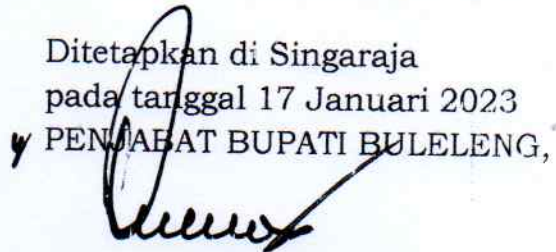 Ditetapkan di Singaraja
pada tanggal 17 Januari 2023
PENJABAT BUPATI BULELENG,